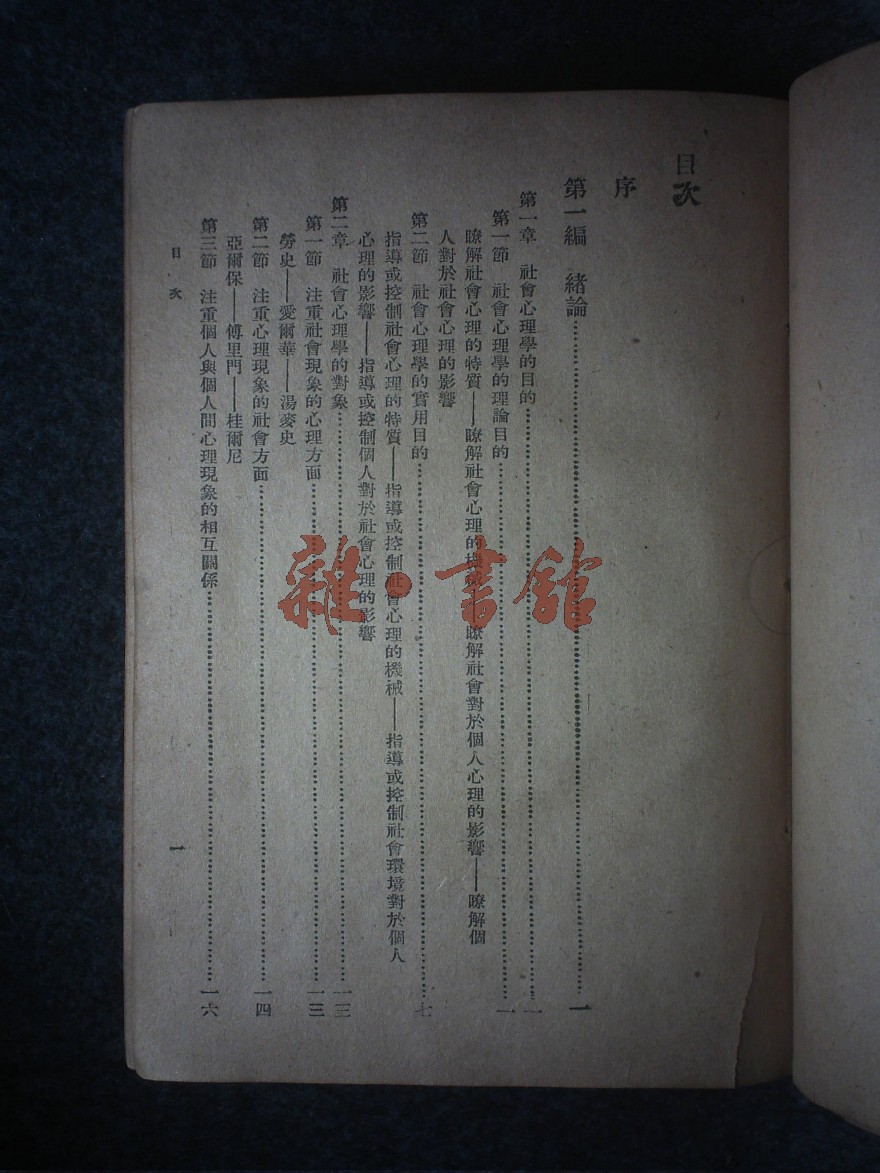 目次
序
第一編　緒論……………………一
第一章　社會心理學的目的……………………一
第一節　社會心理學的理論目的……………………一
瞭解社會心理的特質——瞭解社會心理的機械——瞭解社會對於個人心理的影響——瞭解個
人對於社會心理的影響
第二節　社會心理學的實用目的……………………七
指導或控制社會心理的特質——指導或控制社會心理的機械——指導或控制社會環境對於個人
心理的影響——指導或控制個人對於社會心理的影響
第二章　社會心理學的對象……………………一三
第一節　注重社會現象的心理方面……………………一三
勞史——愛爾華——湯麥史
第二節　注重心理現象的社會方面……………………一四
亞爾保——傅里門——桂爾尼
第三節　注重個人與個人間心理現象的相互關係……………………一六
目次
一
雜·書館